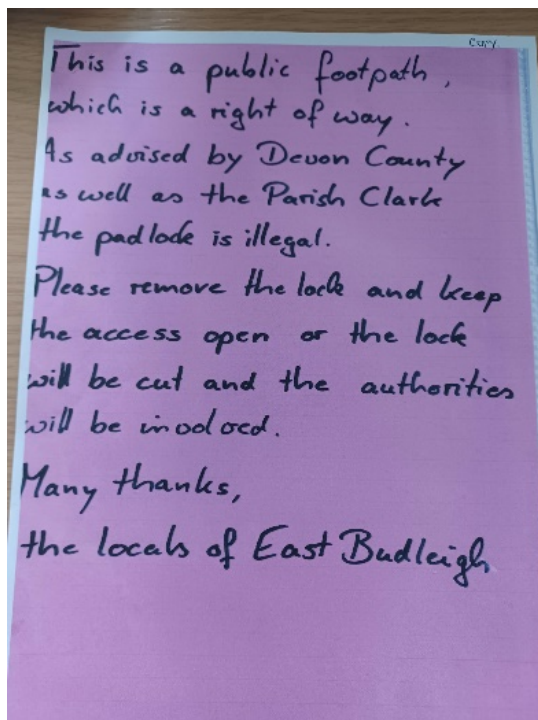 Copy
This is a public footpath,
which is a right of way.
As advised by Devon County
as well as the Parish Clark
the padlock is illegal.
Please remove the lock and keep
the access open or the lock
will be cut and the authorities
will be involved.
Many thanks,
the locals of East Budleigh